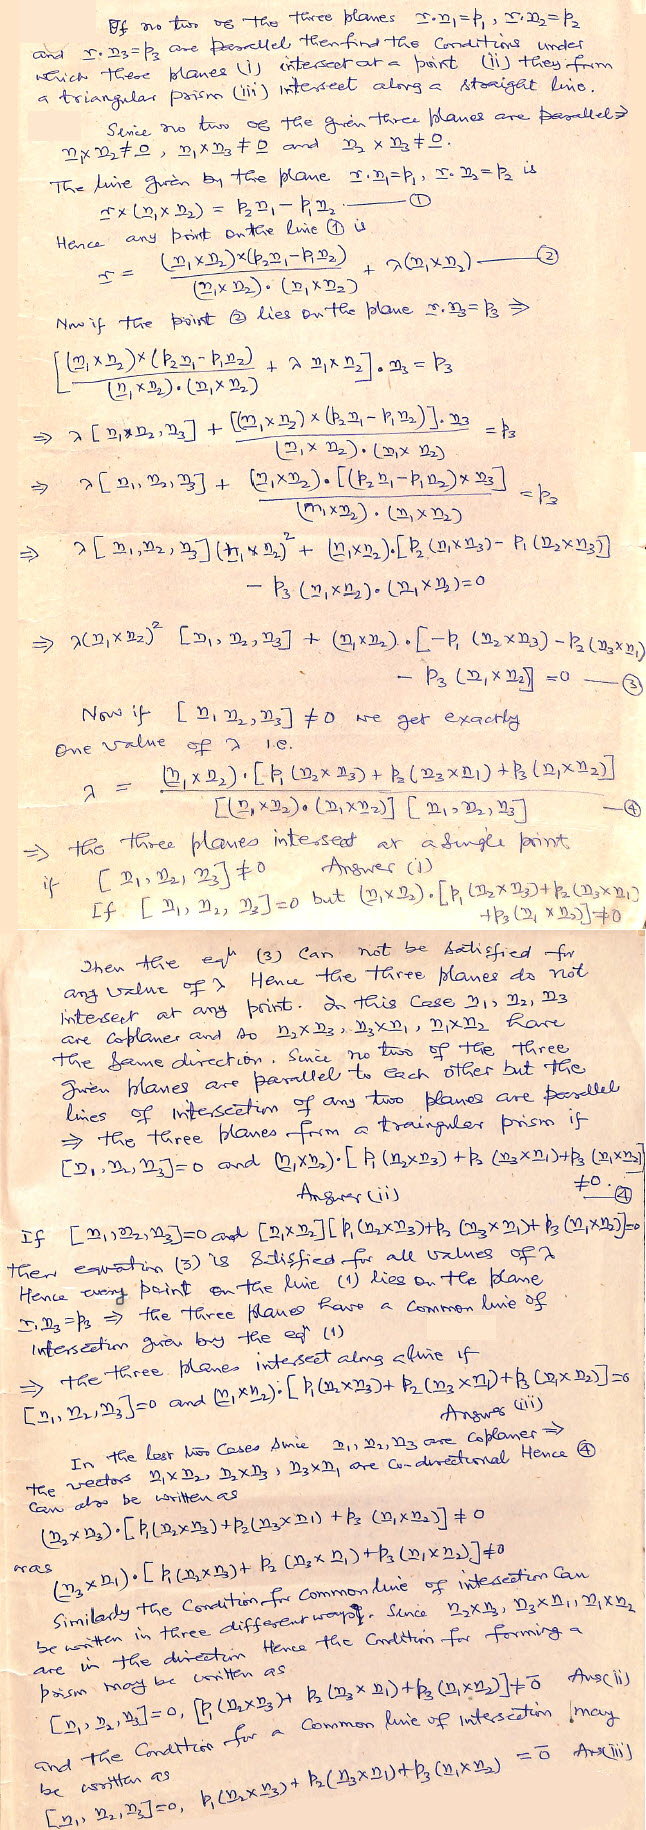 If no two of the three planes r.n₁=p₁, r.n₂=p₂
and r.n₃=p₃ are parallel then find the conditions under
which these planes (i) intersect at a point (ii) they form
a triangular prism (iii) intersect along a straight line.
Since no two of the given three planes are parallel ⇒
n₁×n₂≠0, n₁×n₃≠0 and n₂×n₃≠0.
The line given by the plane r.n₁=p₁, r.n₂=p₂ is
r×(n₁×n₂) = p₂n₁-p₁n₂ —— ①
Hence any point on the line ① is
r = (n₁×n₂)×(p₂n₁-p₁n₂) / (n₁×n₂).(n₁×n₂) + λ(n₁×n₂) —— ②
Now if the point ② lies on the plane r.n₃=p₃ ⇒
[(n₁×n₂)×(p₂n₁-p₁n₂) / (n₁×n₂).(n₁×n₂) + λ n₁×n₂].n₃ = p₃
⇒ λ[n₁×n₂,n₃] + [(n₁×n₂)×(p₂n₁-p₁n₂)].n₃ / (n₁×n₂).(n₁×n₂) = p₃
⇒ λ[n₁,n₂,n₃] + (n₁×n₂).[(p₂n₁-p₁n₂)×n₃] / (n₁×n₂).(n₁×n₂) = p₃
⇒ λ[n₁,n₂,n₃](n₁×n₂)² + (n₁×n₂).[p₂(n₁×n₃)-p₁(n₂×n₃)]
- p₃(n₁×n₂).(n₁×n₂)=0
⇒ λ(n₁×n₂)² [n₁,n₂,n₃] + (n₁×n₂).[-p₁(n₂×n₃)-p₂(n₃×n₁)
- p₃(n₁×n₂)] =0 —— ③
Now if [n₁n₂,n₃]≠0 we get exactly
one value of λ i.e.
λ = (n₁×n₂).[p₁(n₂×n₃)+p₂(n₃×n₁)+p₃(n₁×n₂)] / [(n₁×n₂).(n₁×n₂)][n₁,n₂,n₃] —— ④
⇒ the three planes intersect at a single point
if [n₁,n₂,n₃]≠0 Answer (i)
If [n₁,n₂,n₃]=0 but (n₁×n₂).[p₁(n₂×n₃)+p₂(n₃×n₁)
+p₃(n₁×n₂)]≠0
Then the eqⁿ (3) can not be satisfied for
any value of λ Hence the three planes do not
intersect at any point. In this case n₁,n₂,n₃
are coplaner and so n₂×n₃, n₃×n₁, n₁×n₂ have
the same direction. Since no two of the three
given planes are parallel to each other but the
lines of intersection of any two planes are parallel
⇒ the three planes form a traingular prism if
[n₁,n₂,n₃]=0 and (n₁×n₂).[p₁(n₂×n₃)+p₂(n₃×n₁)+p₃(n₁×n₂)]
≠0. —— ④
Answer (ii)
If [n₁,n₂,n₃]=0 and [n₁×n₂][p₁(n₂×n₃)+p₂(n₃×n₁)+p₃(n₁×n₂)]=0
then equation (3) is satisfied for all values of λ
Hence every point on the line (1) lies on the plane
r.n₃=p₃ ⇒ the three planes have a common line of
intersection given by the eqⁿ (1)
⇒ the three planes intersect along a line if
[n₁,n₂,n₃]=0 and (n₁×n₂).[p₁(n₂×n₃)+p₂(n₃×n₁)+p₃(n₁×n₂)]=0
Answer (iii)
In the last two cases since n₁,n₂,n₃ are coplaner ⇒
the vectors n₁×n₂, n₂×n₃, n₃×n₁ are co-directional Hence ④
can also be written as
(n₂×n₃).[p₁(n₂×n₃)+p₂(n₃×n₁)+p₃(n₁×n₂)]≠0
or as
(n₃×n₁).[p₁(n₂×n₃)+p₂(n₃×n₁)+p₃(n₁×n₂)]≠0
Similarly the condition for common line of intersection can
be written in three different ways. Since n₂×n₃, n₃×n₁, n₁×n₂
are in the direction Hence the condition for forming a
prism may be written as
[n₁,n₂,n₃]=0, [p₁(n₂×n₃)+p₂(n₃×n₁)+p₃(n₁×n₂)]≠0̄ Ans(ii)
and the condition for a common line of intersection may
be written as
[n₁,n₂,n₃]=0, p₁(n₂×n₃)+p₂(n₃×n₁)+p₃(n₁×n₂) = 0̄ Ans(iii)